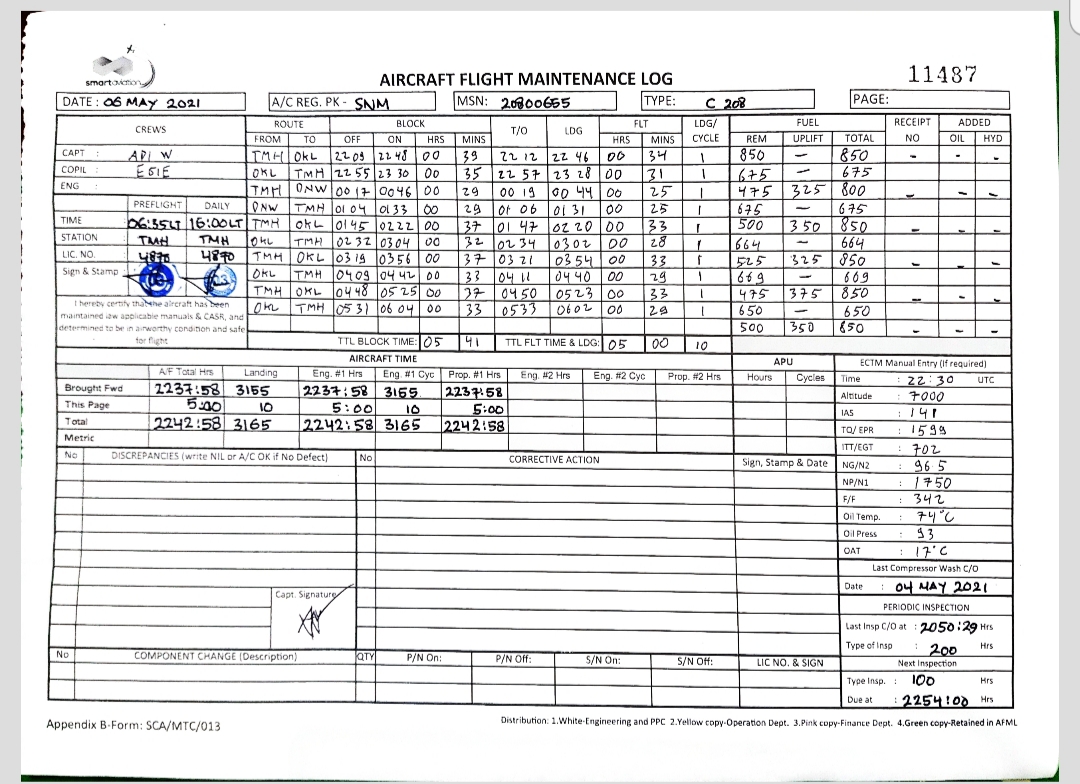 smartaviation
AIRCRAFT FLIGHT MAINTENANCE LOG
11487
DATE : 06 MAY 2021 A/C REG. PK - SNM MSN: 20800655 TYPE: C 208 PAGE:
CREWS ROUTE BLOCK T/O LDG FLT LDG/ CYCLE FUEL RECEIPT NO ADDED
FROM TO OFF ON HRS MINS HRS MINS REM UPLIFT TOTAL OIL HYD
CAPT : API W TMH OKL 2209 2248 00 39 2212 2246 00 34 1 850 — 850 - - -
COPIL : EGIE OKL TMH 2255 2330 00 35 2257 2328 00 31 1 675 — 675
ENG : TMH ONW 0017 0046 00 29 0019 0044 00 25 1 475 325 800 - - -
PREFLIGHT DAILY ONW TMH 0104 0133 00 29 0106 0131 00 25 1 675 — 675
TIME : 06:35LT 16:00LT TMH OKL 0145 0222 00 37 0147 0220 00 33 1 500 350 850 - - -
STATION : TMH TMH OKL TMH 0232 0304 00 32 0234 0302 00 28 1 664 — 664
LIC. NO. : 4870 4870 TMH OKL 0319 0356 00 37 0321 0354 00 33 1 525 325 850 - - -
Sign & Stamp : OKL TMH 0409 0442 00 33 0411 0440 00 29 1 669 — 669
TMH OKL 0448 0525 00 37 0450 0523 00 33 1 475 375 850 - - -
I hereby certify that the aircraft has been OKL TMH 0531 0604 00 33 0533 0602 00 29 1 650 — 650
maintained iaw applicable manuals & CASR, and
determined to be in airworthy condition and safe 500 350 850 - - -
for flight TTL BLOCK TIME: 05 41 TTL FLT TIME & LDG: 05 00 10
AIRCRAFT TIME APU ECTM Manual Entry (If required)
A/F Total Hrs Landing Eng. #1 Hrs Eng. #1 Cyc Prop. #1 Hrs Eng. #2 Hrs Eng. #2 Cyc Prop. #2 Hrs Hours Cycles Time : 22:30 UTC
Brought Fwd 2237:58 3155 2237:58 3155 2237:58 Altitude : 7000
This Page 5:00 10 5:00 10 5:00 IAS : 141
Total 2242:58 3165 2242:58 3165 2242:58 TQ/ EPR : 1599
Metric ITT/EGT : 702
No DISCREPANCIES (write NIL or A/C OK if No Defect) No CORRECTIVE ACTION Sign, Stamp & Date NG/N2 : 96.5
NP/N1 : 1750
F/F : 342
Oil Temp. : 74°C
Oil Press : 93
OAT : 17°C
Last Compressor Wash C/O
Date : 04 MAY 2021
Capt. Signature
PERIODIC INSPECTION
Last Insp C/O at : 2050:29 Hrs
Type of Insp : 200 Hrs
No COMPONENT CHANGE (Description) QTY P/N On: P/N Off: S/N On: S/N Off: LIC NO. & SIGN Next Inspection
Type Insp. : 100 Hrs
Due at : 2254:00 Hrs
Appendix B-Form: SCA/MTC/013
Distribution: 1.White-Engineering and PPC 2.Yellow copy-Operation Dept. 3.Pink copy-Finance Dept. 4.Green copy-Retained in AFML